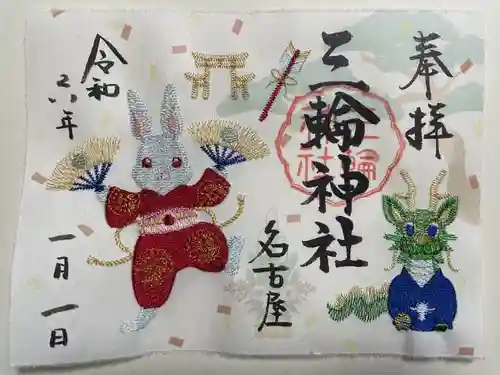 奉拝
三輪神社
名古屋
令和
六年
一月一日
三輪
神社